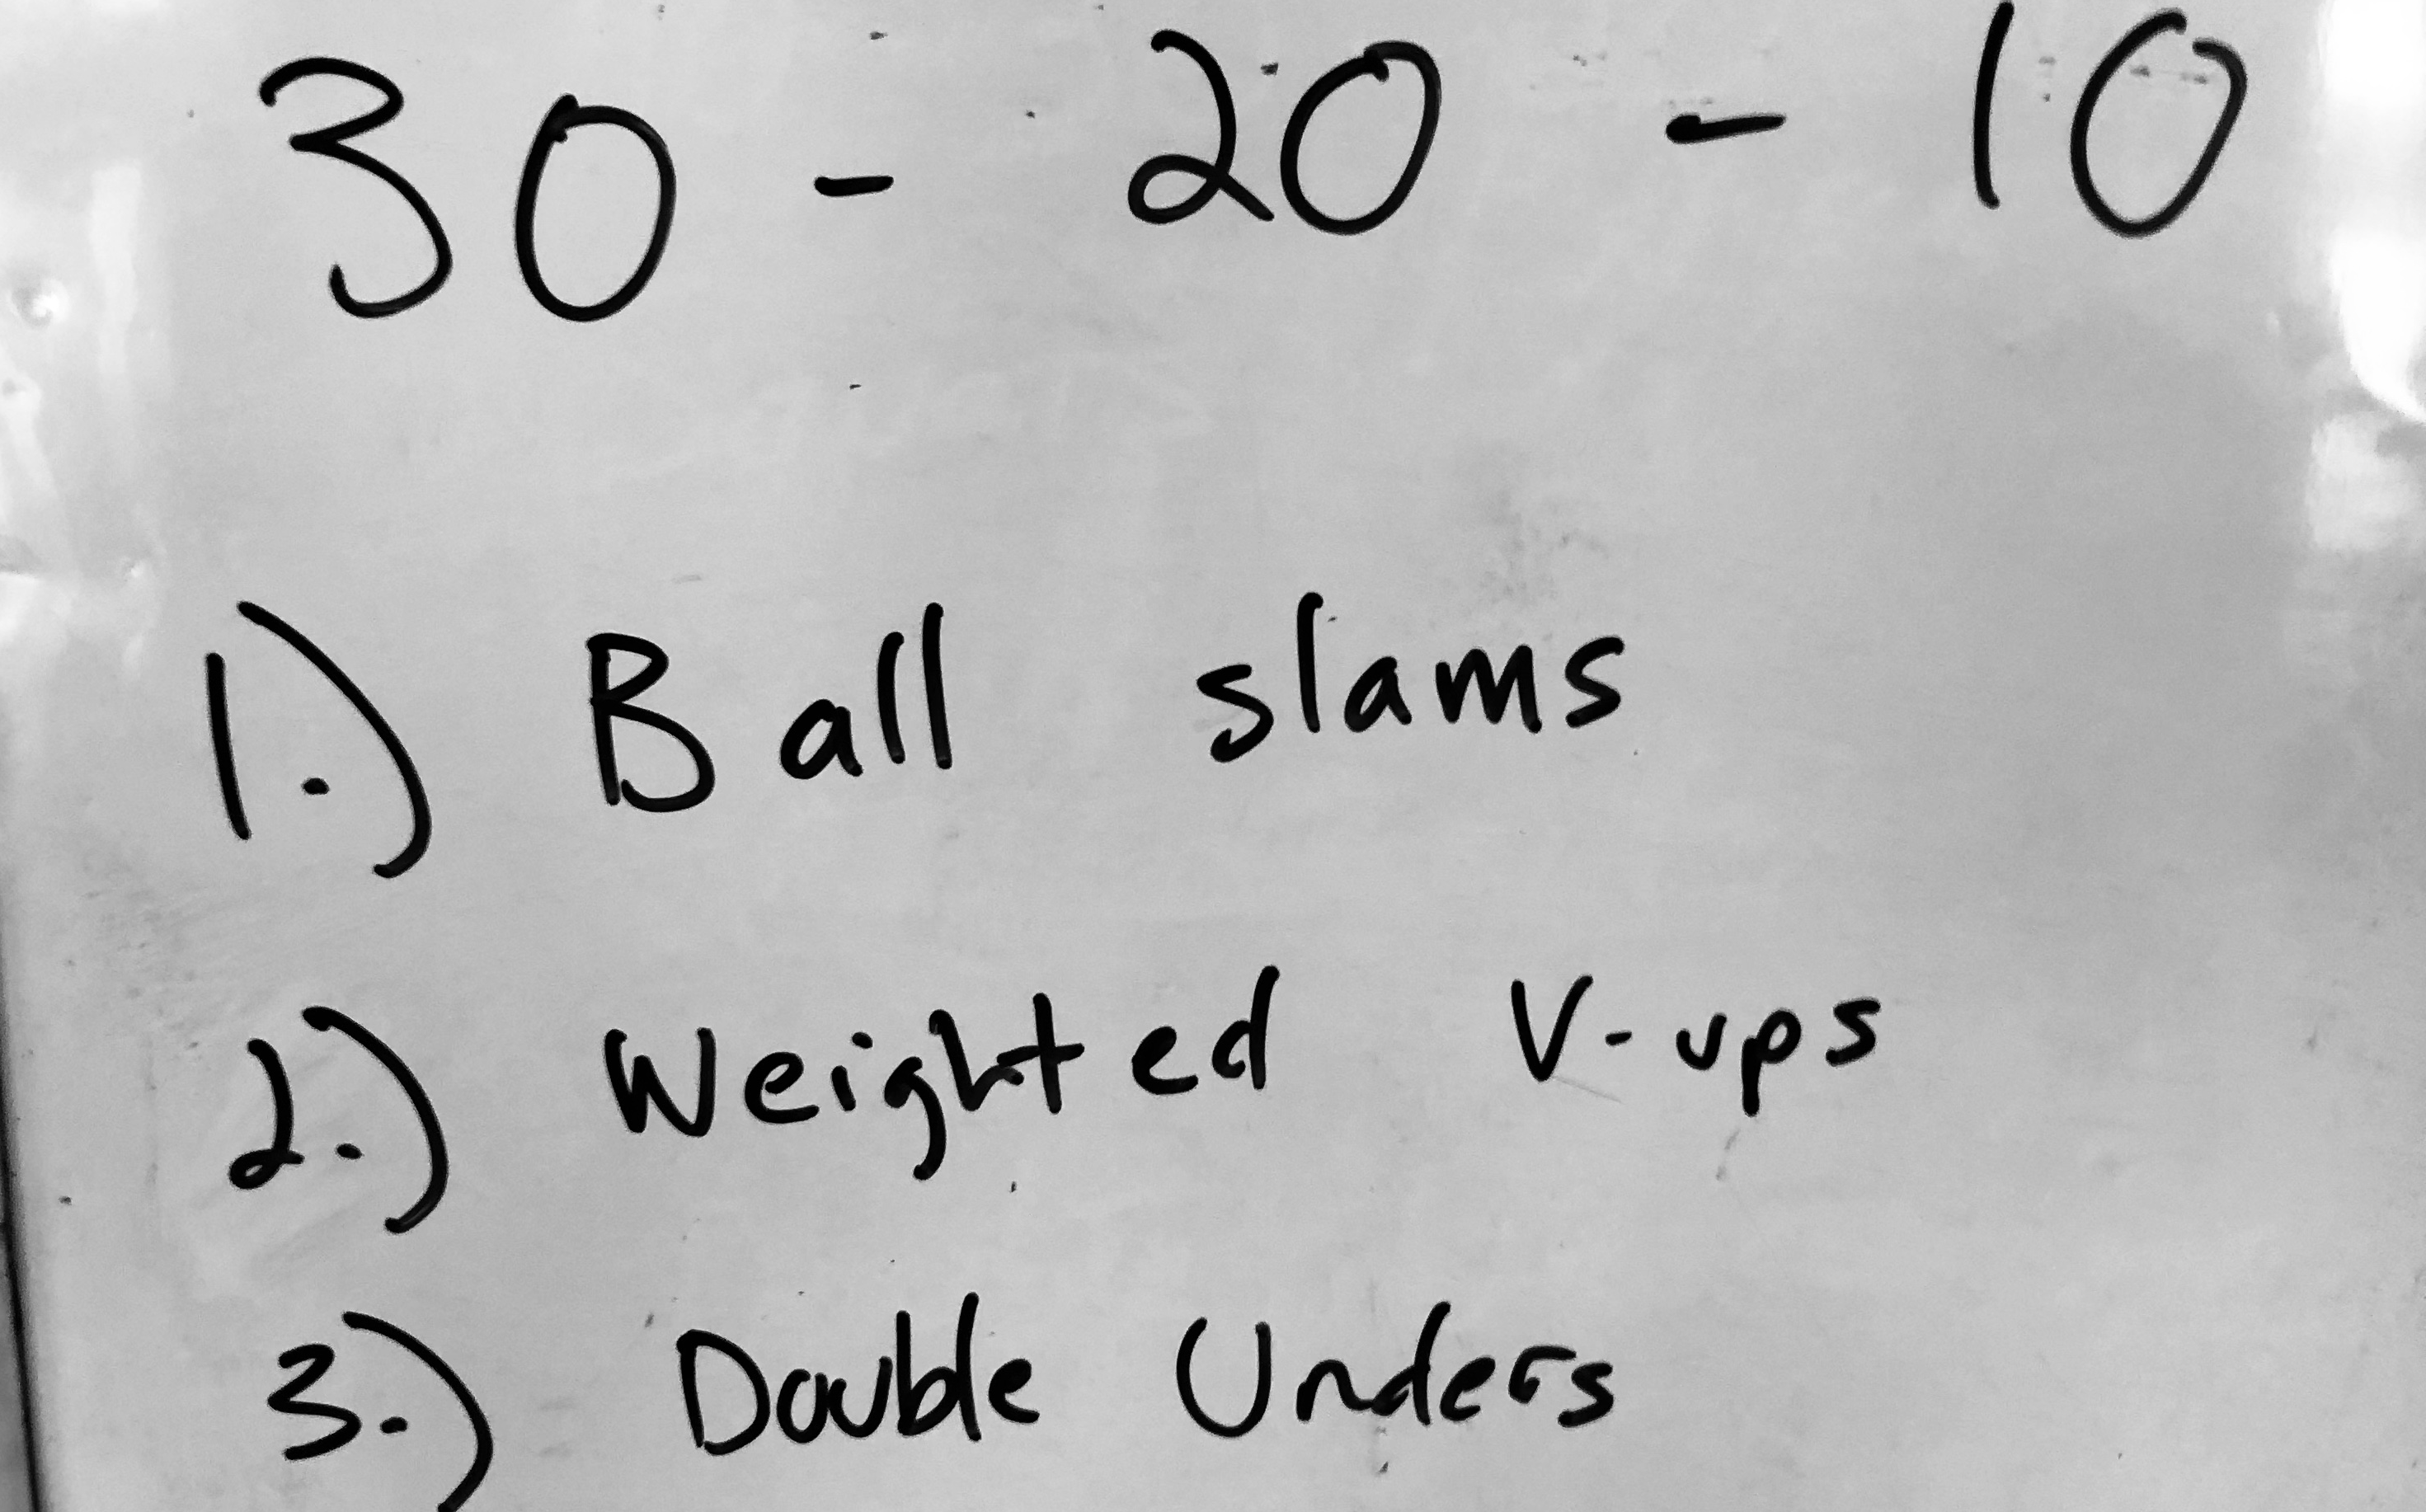 30 - 20 - 10
1.) Ball slams
2.) Weighted V-ups
3.) Double Unders